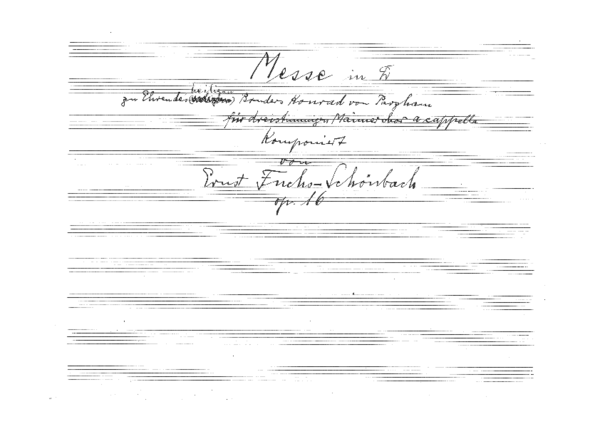 Messe in
heiligen
zu Ehren des Bruders Konrad von Parzham
für dreistimmigen Männerchor a cappella
Komponiert
von
Ernst Fuchs-Schönbach
op. 16